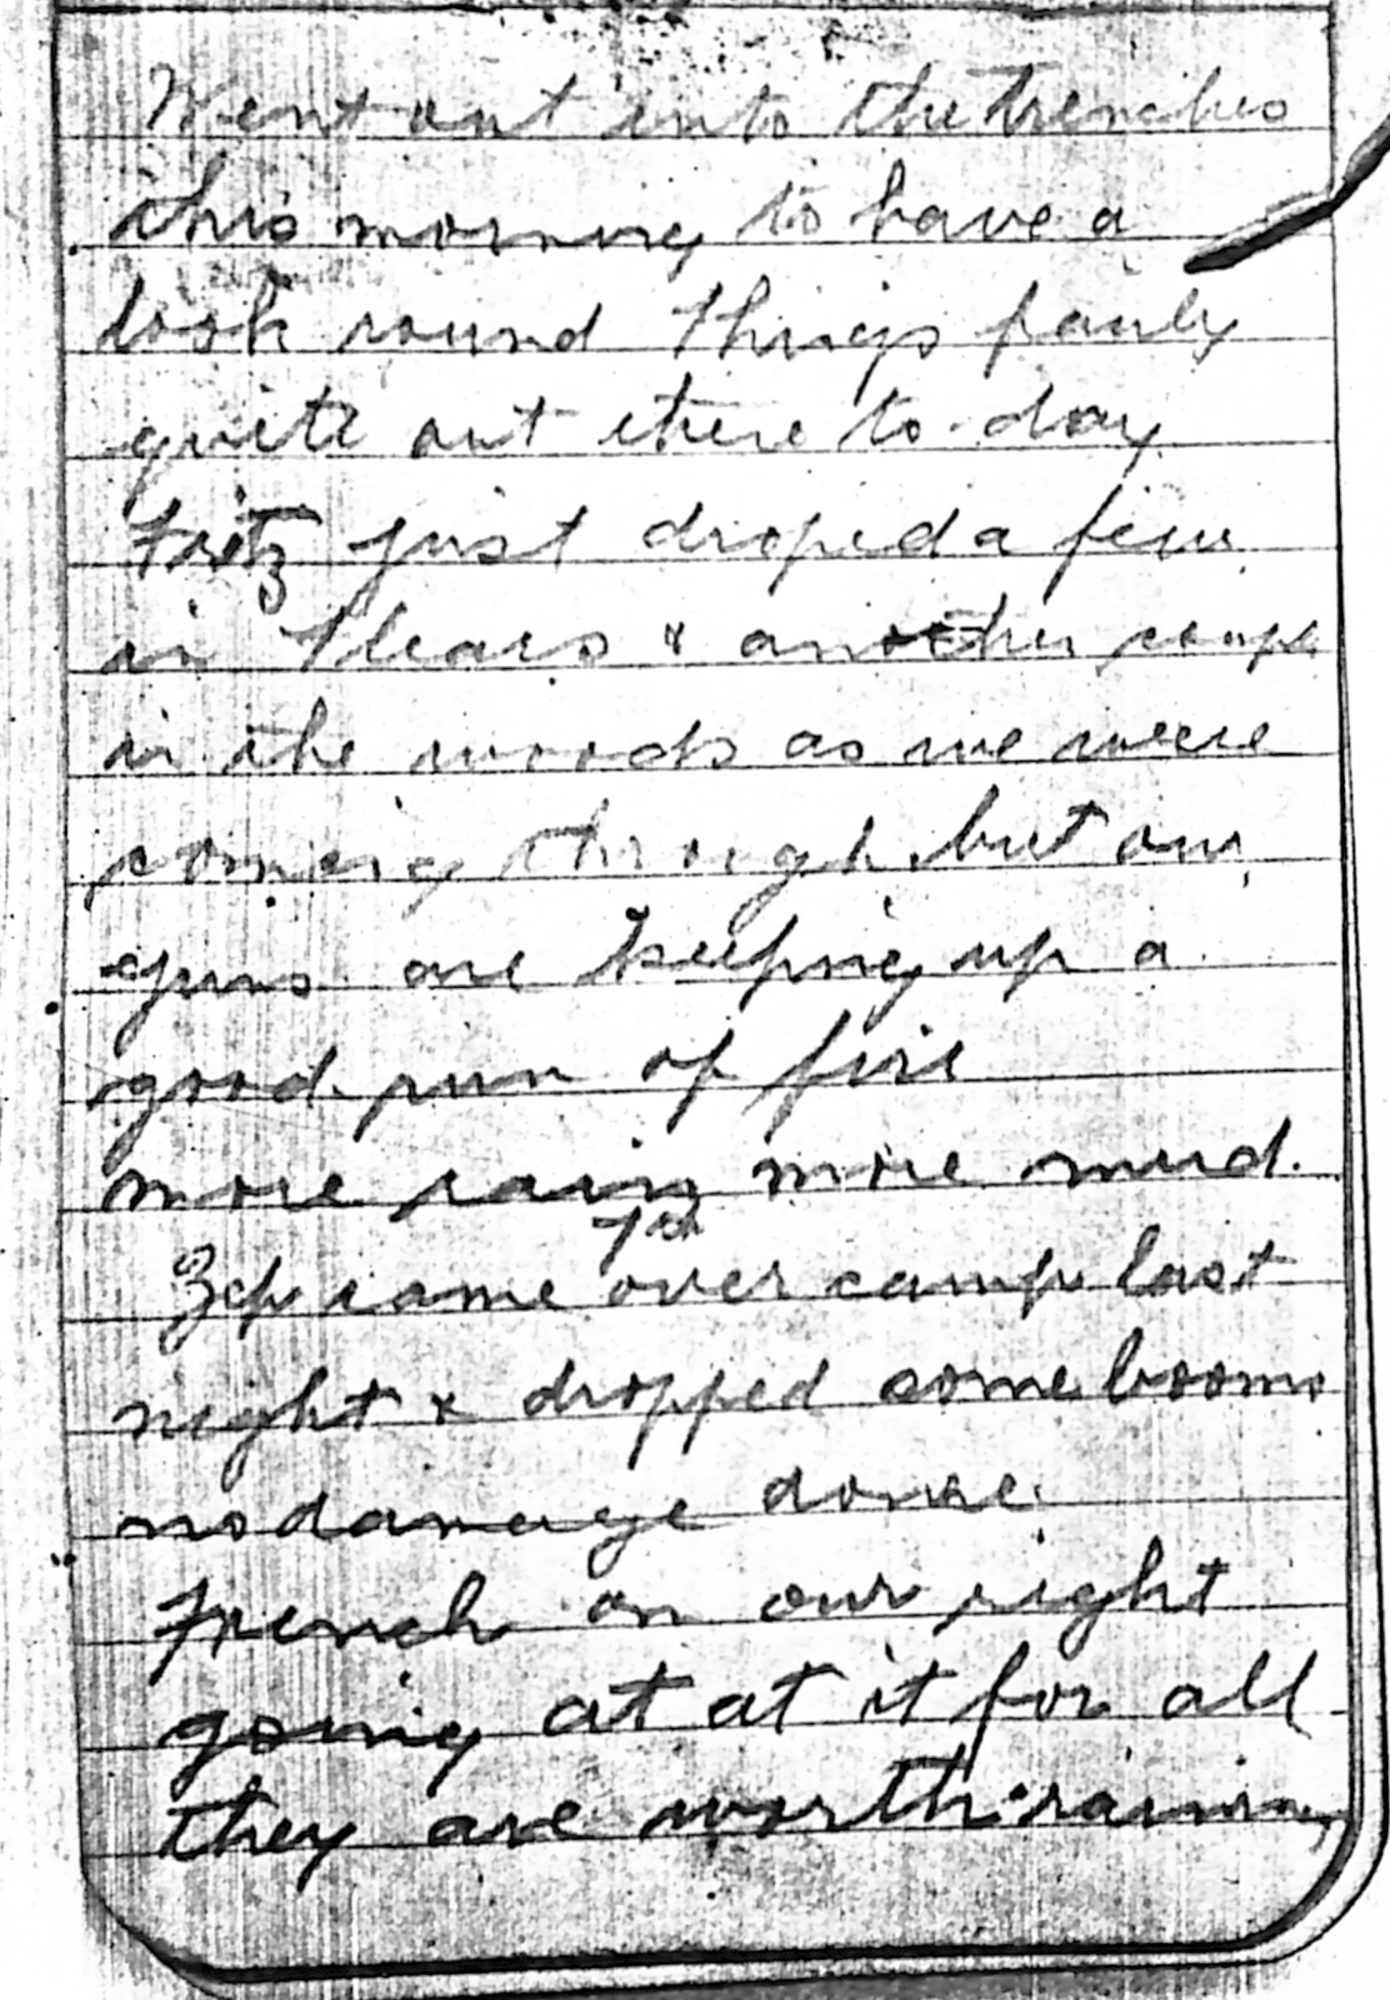 Went out into the trenches
this morning to have a
look round Things fairly
quite out there to-day
Fritz just droped a few
in Flears & another coupl
in the woods as we were
coming through but our
guns are keeping up a
good run of fire
more rain more mud.
Zep came over camp last
night & dropped some booms
no damage donne.
French on our right
going at at it for all
they are worth. raining